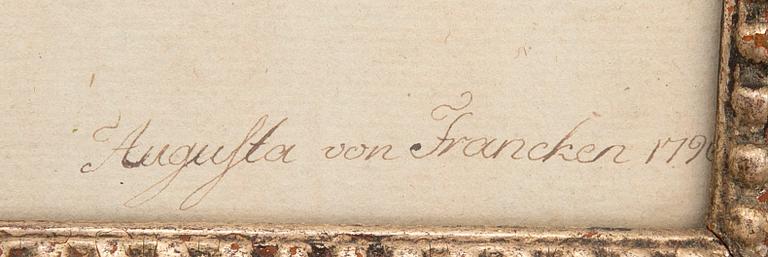 Auguſta von Francken 1790